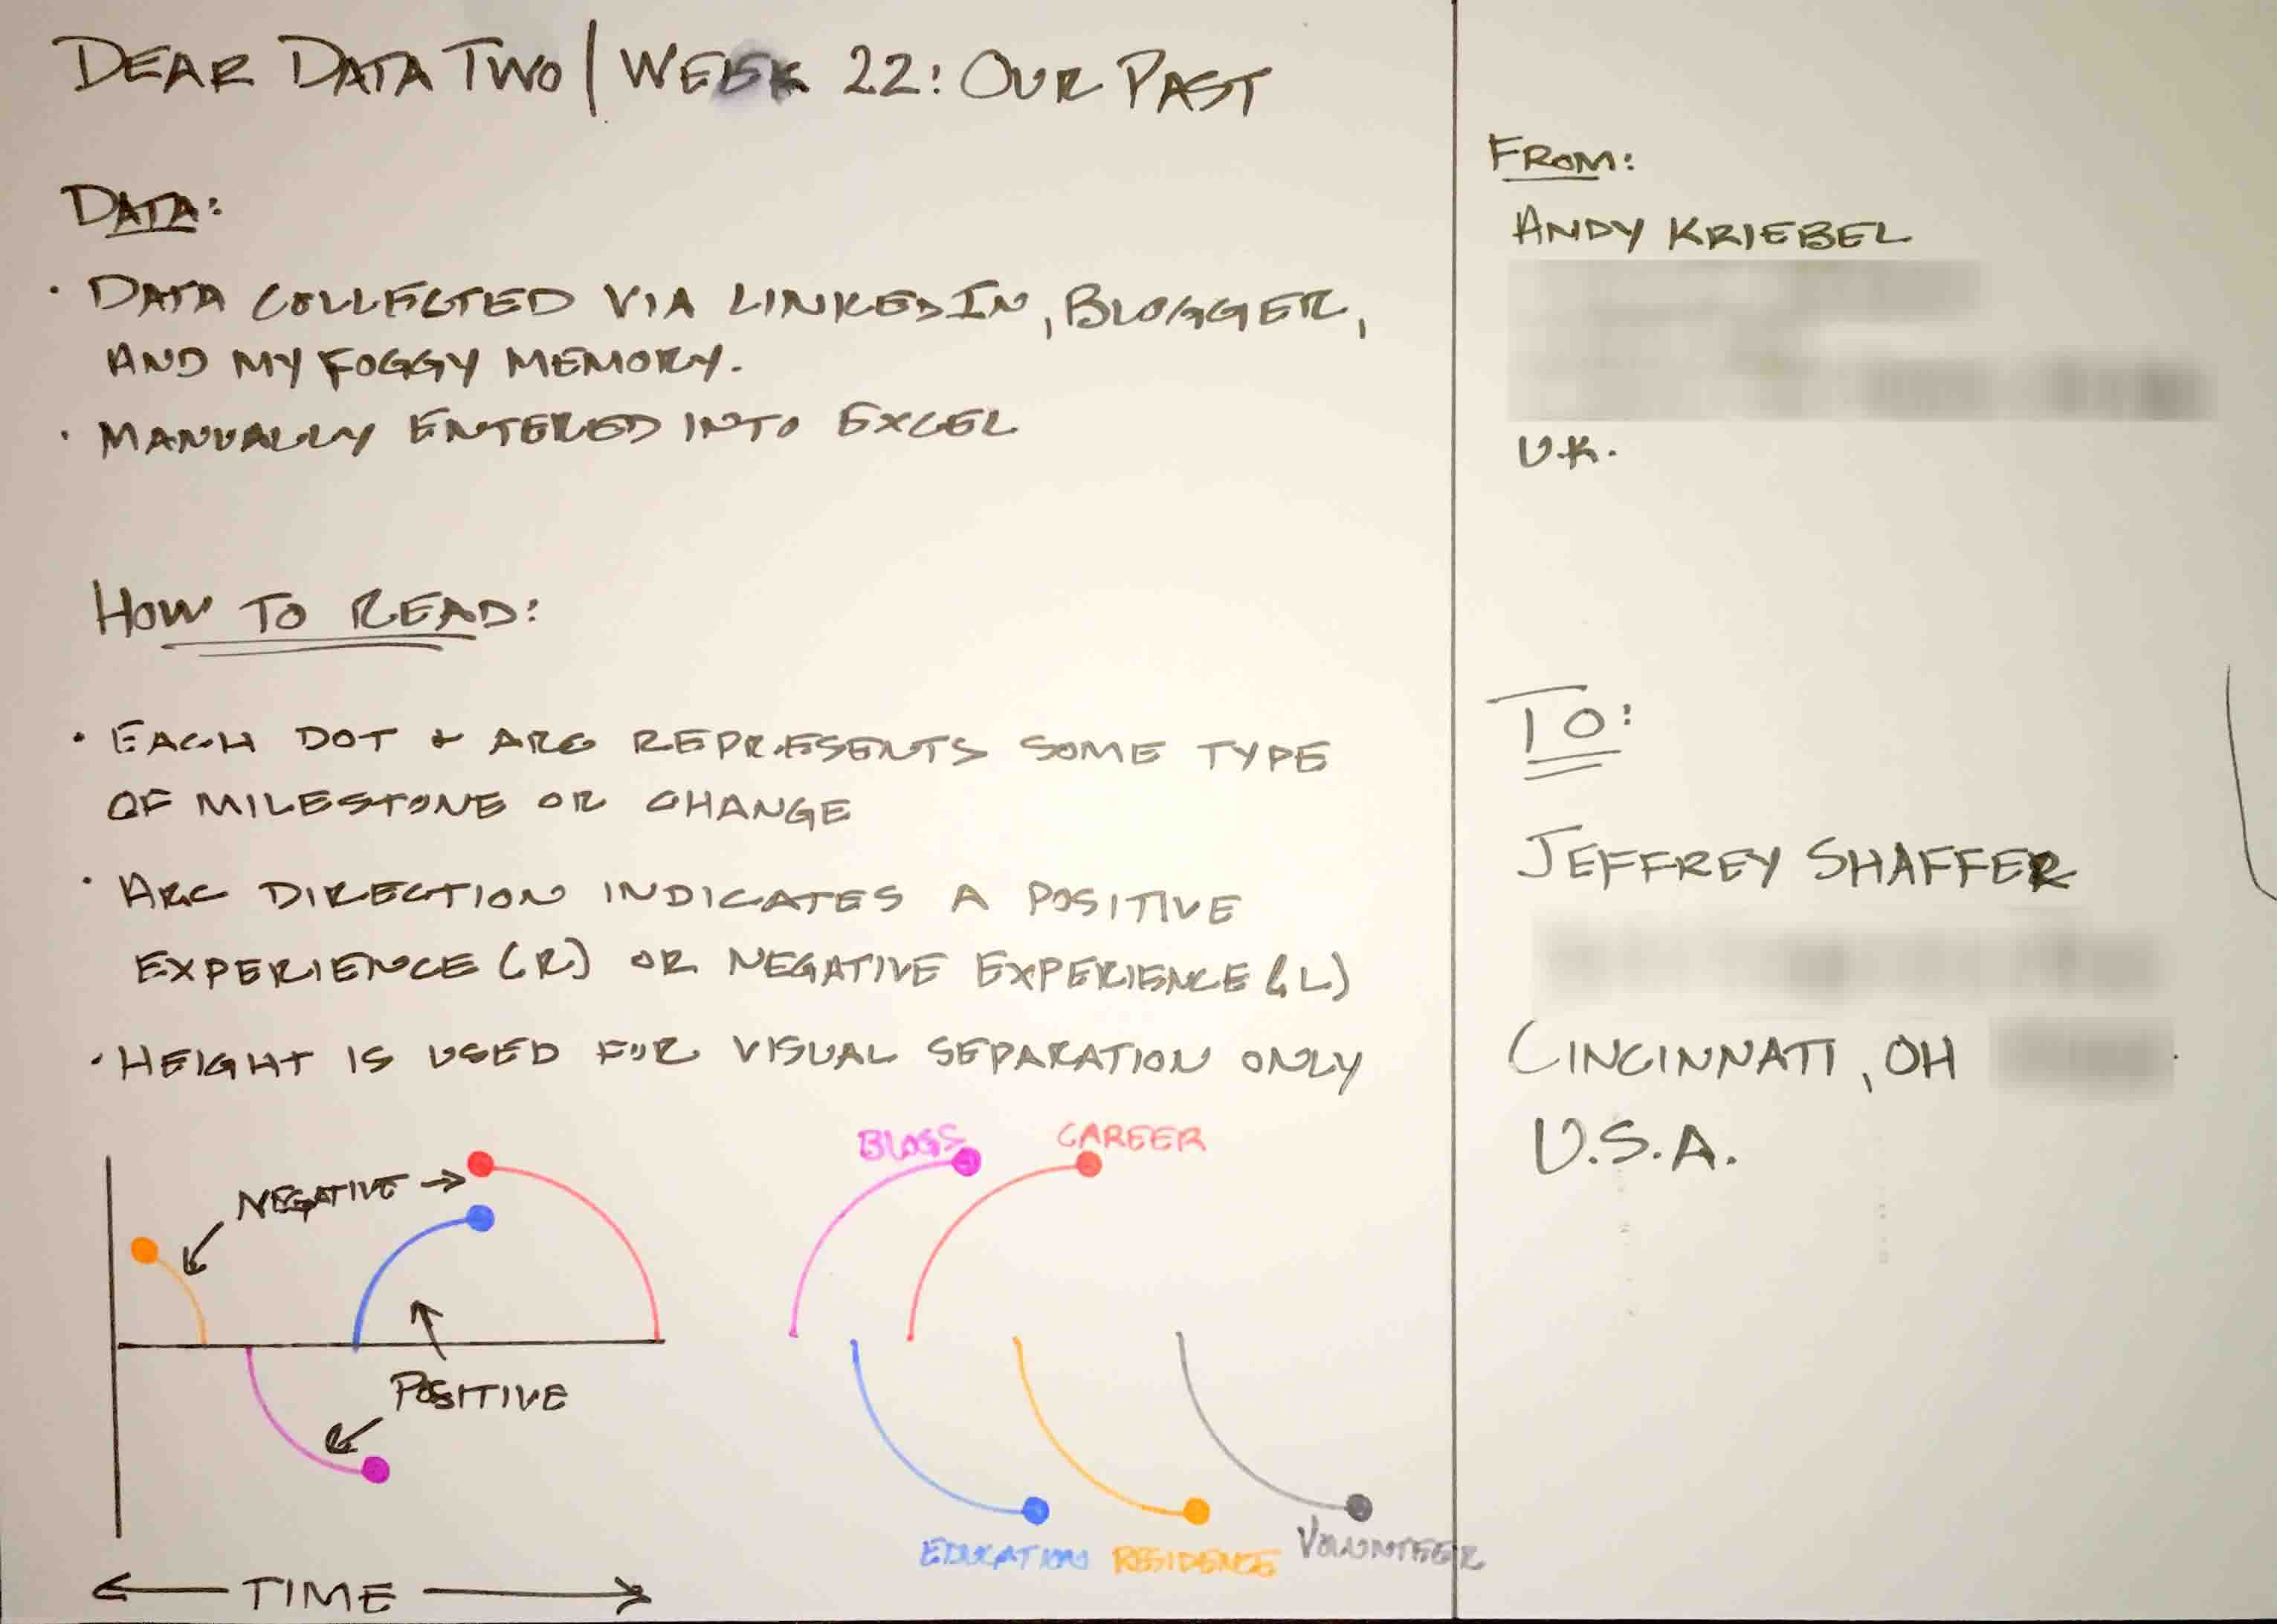 DEAR DATA TWO | WEEK 22: OUR PAST
DATA:
· DATA COLLECTED VIA LINKEDIN, BLOGGER,
AND MY FOGGY MEMORY.
· MANUALLY ENTERED INTO EXCEL
HOW TO READ:
· EACH DOT + ARC REPRESENTS SOME TYPE
OF MILESTONE OR CHANGE
· ARC DIRECTION INDICATES A POSITIVE
EXPERIENCE (R) OR NEGATIVE EXPERIENCE (L)
· HEIGHT IS USED FOR VISUAL SEPARATION ONLY
NEGATIVE
POSITIVE
TIME
BLOGS
CAREER
EDUCATION
RESIDENCE
VOLUNTEER
FROM:
ANDY KRIEBEL
U.K.
TO:
JEFFREY SHAFFER
CINCINNATI, OH
U.S.A.